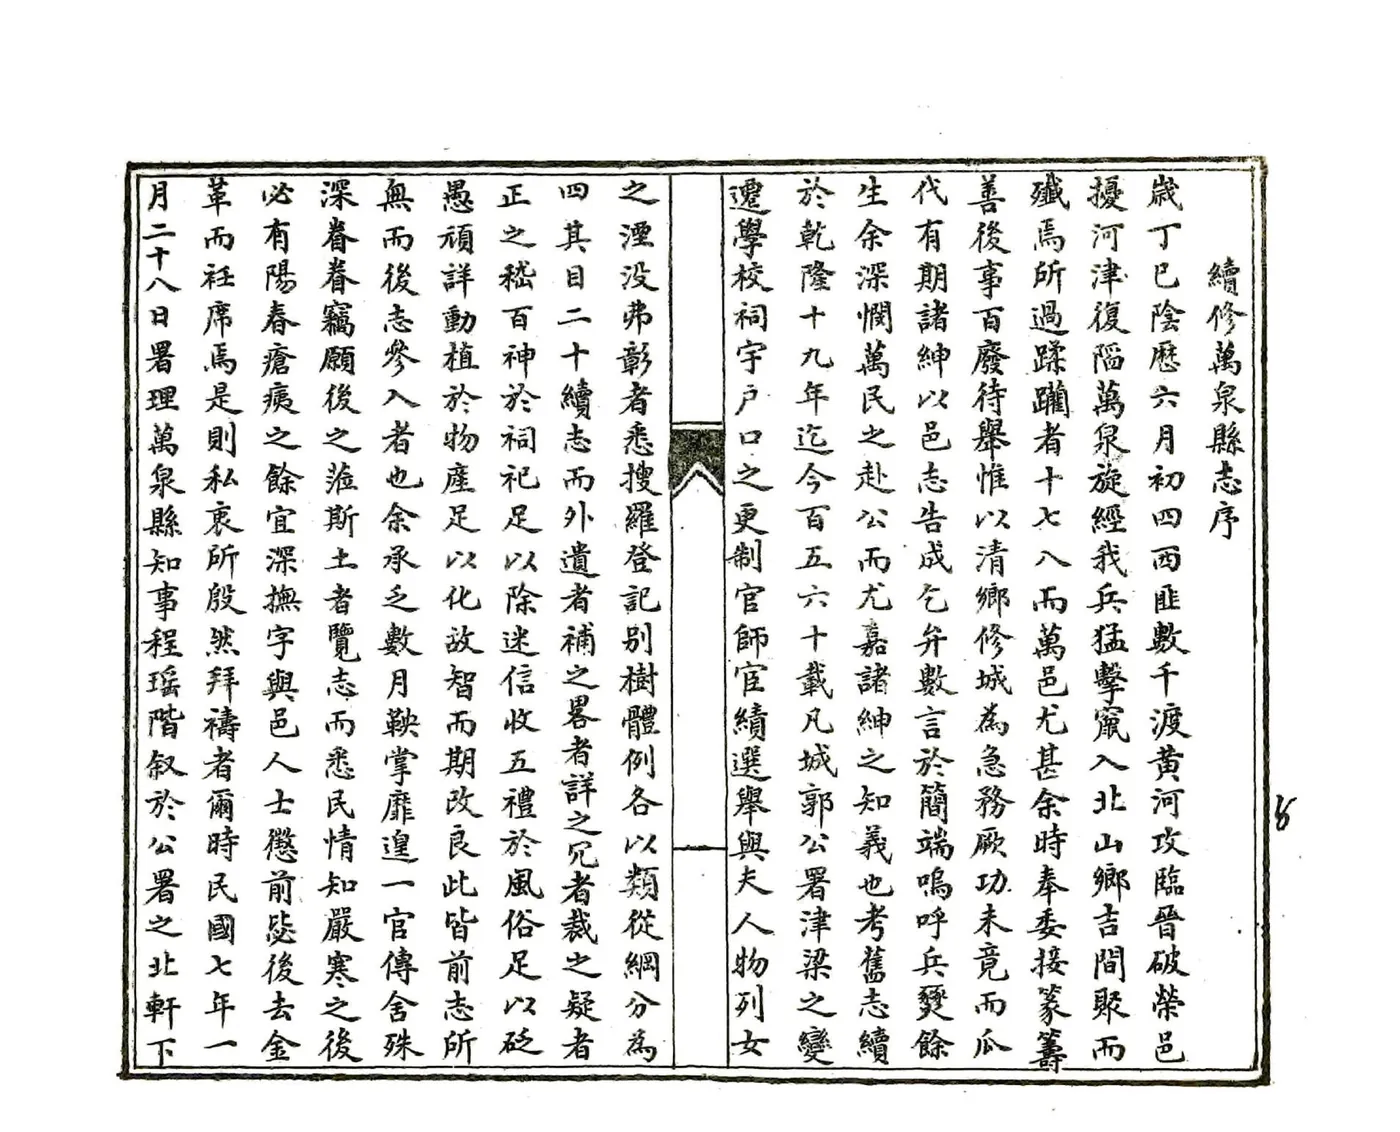 續修萬泉縣志序
歲丁巳陰歷六月初四西匪數千渡黃河攻臨晉破榮邑
擾河津復陷萬泉旋經我兵猛擊竄入北山鄉吉間聚而
殲焉所過蹂躪者十七八而萬邑尤甚余時奉委接篆籌
善後事百廢待舉惟以清鄉修城為急務厥功未竟而瓜
代有期諸紳以邑志告成乞弁數言於簡端嗚呼兵燹餘
生余深憫萬民之赴公而尤嘉諸紳之知義也考舊志續
於乾隆十九年迄今百五六十載凡城郭公署津梁之變
遷學校祠宇戶口之更制官師宦績選舉與夫人物列女
之湮没弗彰者悉搜羅登記別樹體例各以類從綱分為
四其目二十續志而外遺者補之畧者詳之冗者裁之疑者
正之嵇百神於祠祀足以除迷信收五禮於風俗足以砭
愚頑詳動植於物產足以化故智而期改良此皆前志所
無而後志參入者也余承乏數月鞅掌靡遑一官傳舍殊
深眷眷竊願後之蒞斯土者覽志而悉民情知嚴寒之後
必有陽春瘡痍之餘宜深撫字與邑人士懲前毖後去金
革而衽席焉是則私衷所殷然拜禱者爾時民國七年一
月二十八日署理萬泉縣知事程瑶階叙於公署之北軒下